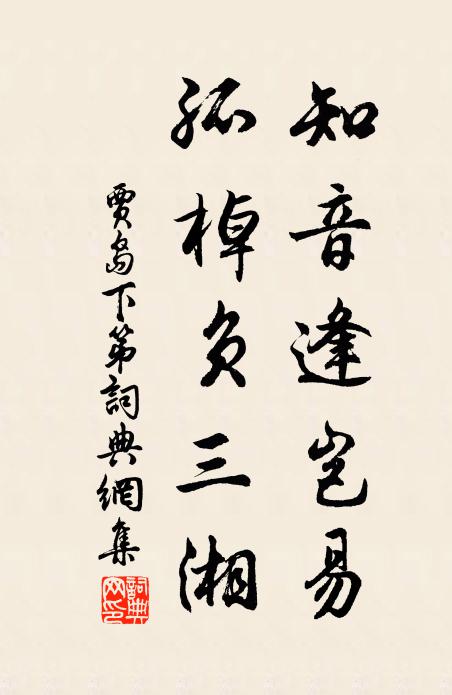 知音逢岂易
孤棹负三湘
贾岛下第詞典網集
詞典网印